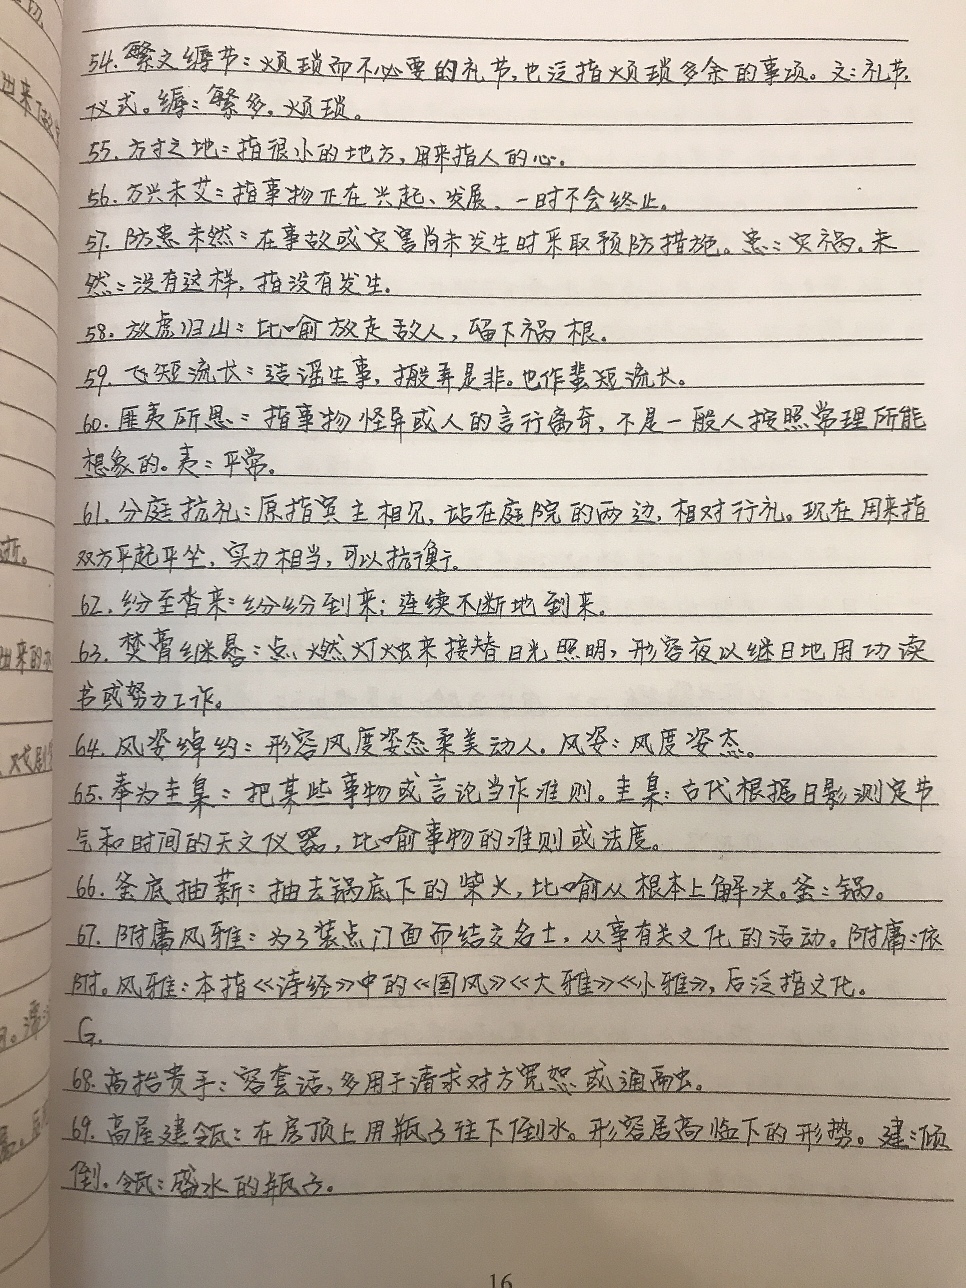 54.繁文缛节：烦琐而不必要的礼节，也泛指烦琐多余的事项。文：礼节
仪式。缛：繁多。烦琐。
55.方寸之地：指很小的地方，用来指人的心。
56.方兴未艾：指事物正在兴起、发展、一时不会终止。
57.防患未然：在事故或灾害尚未发生时采取预防措施。患：灾祸。未
然：没有这样，指没有发生。
58.放虎归山：比喻放走敌人，留下祸根。
59.飞短流长：造谣生事，搬弄是非。也作蜚短流长。
60.匪夷所思：指事物怪异或人的言行离奇，不是一般人按照常理所能
想象的。夷：平常。
61.分庭抗礼：原指宾主相见，站在庭院的两边，相对行礼。现在用来指
双方平起平坐，实力相当，可以抗衡。
62.纷至沓来：纷纷到来；连续不断地到来。
63.焚膏继晷：点燃灯烛来接替日光照明，形容夜以继日地用功读
书或努力工作。
64.风姿绰约：形容风度姿态柔美动人。风姿：风度姿态。
65.奉为圭臬：把某些事物或言论当作准则。圭臬：古代根据日影测定节
气和时间的天文仪器，比喻事物的准则或法度。
66.釜底抽薪：抽去锅底下的柴火，比喻从根本上解决。釜：锅。
67.附庸风雅：为了装点门面而结交名士，从事有关文化的活动。附庸：依
附。风雅：本指《诗经》中的《国风》《大雅》《小雅》，后泛指文化。
G.
68.高抬贵手：客套话，多用于请求对方宽恕或通融。
69.高屋建瓴：在房顶上用瓶子往下倒水。形容居高临下的形势。建：倾
倒。瓴：盛水的瓶子。
16